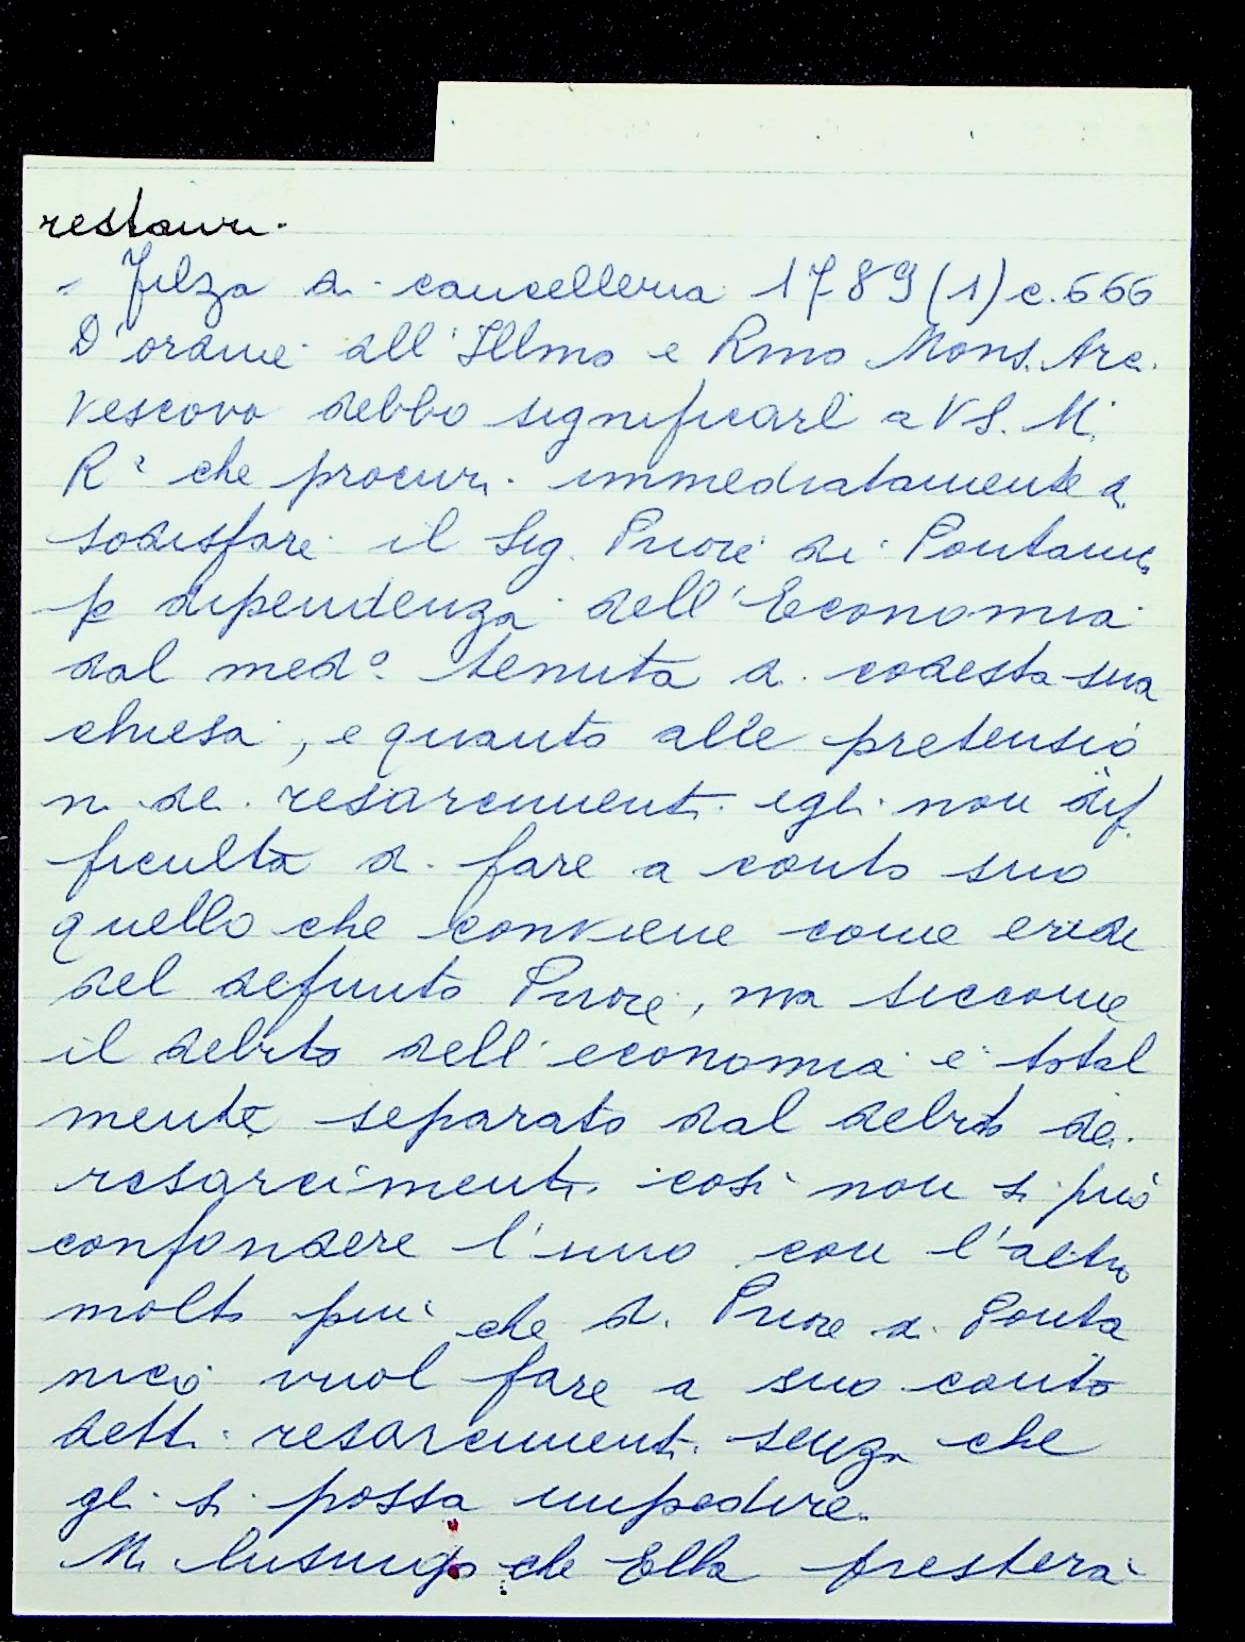 restauri.
- Filza di cancelleria 1789 (1) c. 666
D'ordine all'Illmo e Rmo Mons. Arc.
vescovo debbo significarli a VS. M.
Rª che procuri immediatamente di
sodisfare il Sig. Priore di Pontanic
p dipendenza dell'Economia
dal medº tenuta di codesta sua
chiesa, e quanto alle pretensio
ni dei resarcimenti egli non dif
ficulta di fare a conto suo
quello che conviene come erede
del defunto Priore, ma siccome
il debito dell'economia è total
mente separato dal debito dei
resarcimenti così non si può
confondere l'uno con l'altro
molto più che d. Priore di Ponta
nico vuol fare a suo conto
detti resarcimenti senza che
gli si possa impedire.
Mi lusingo che Ella presterà